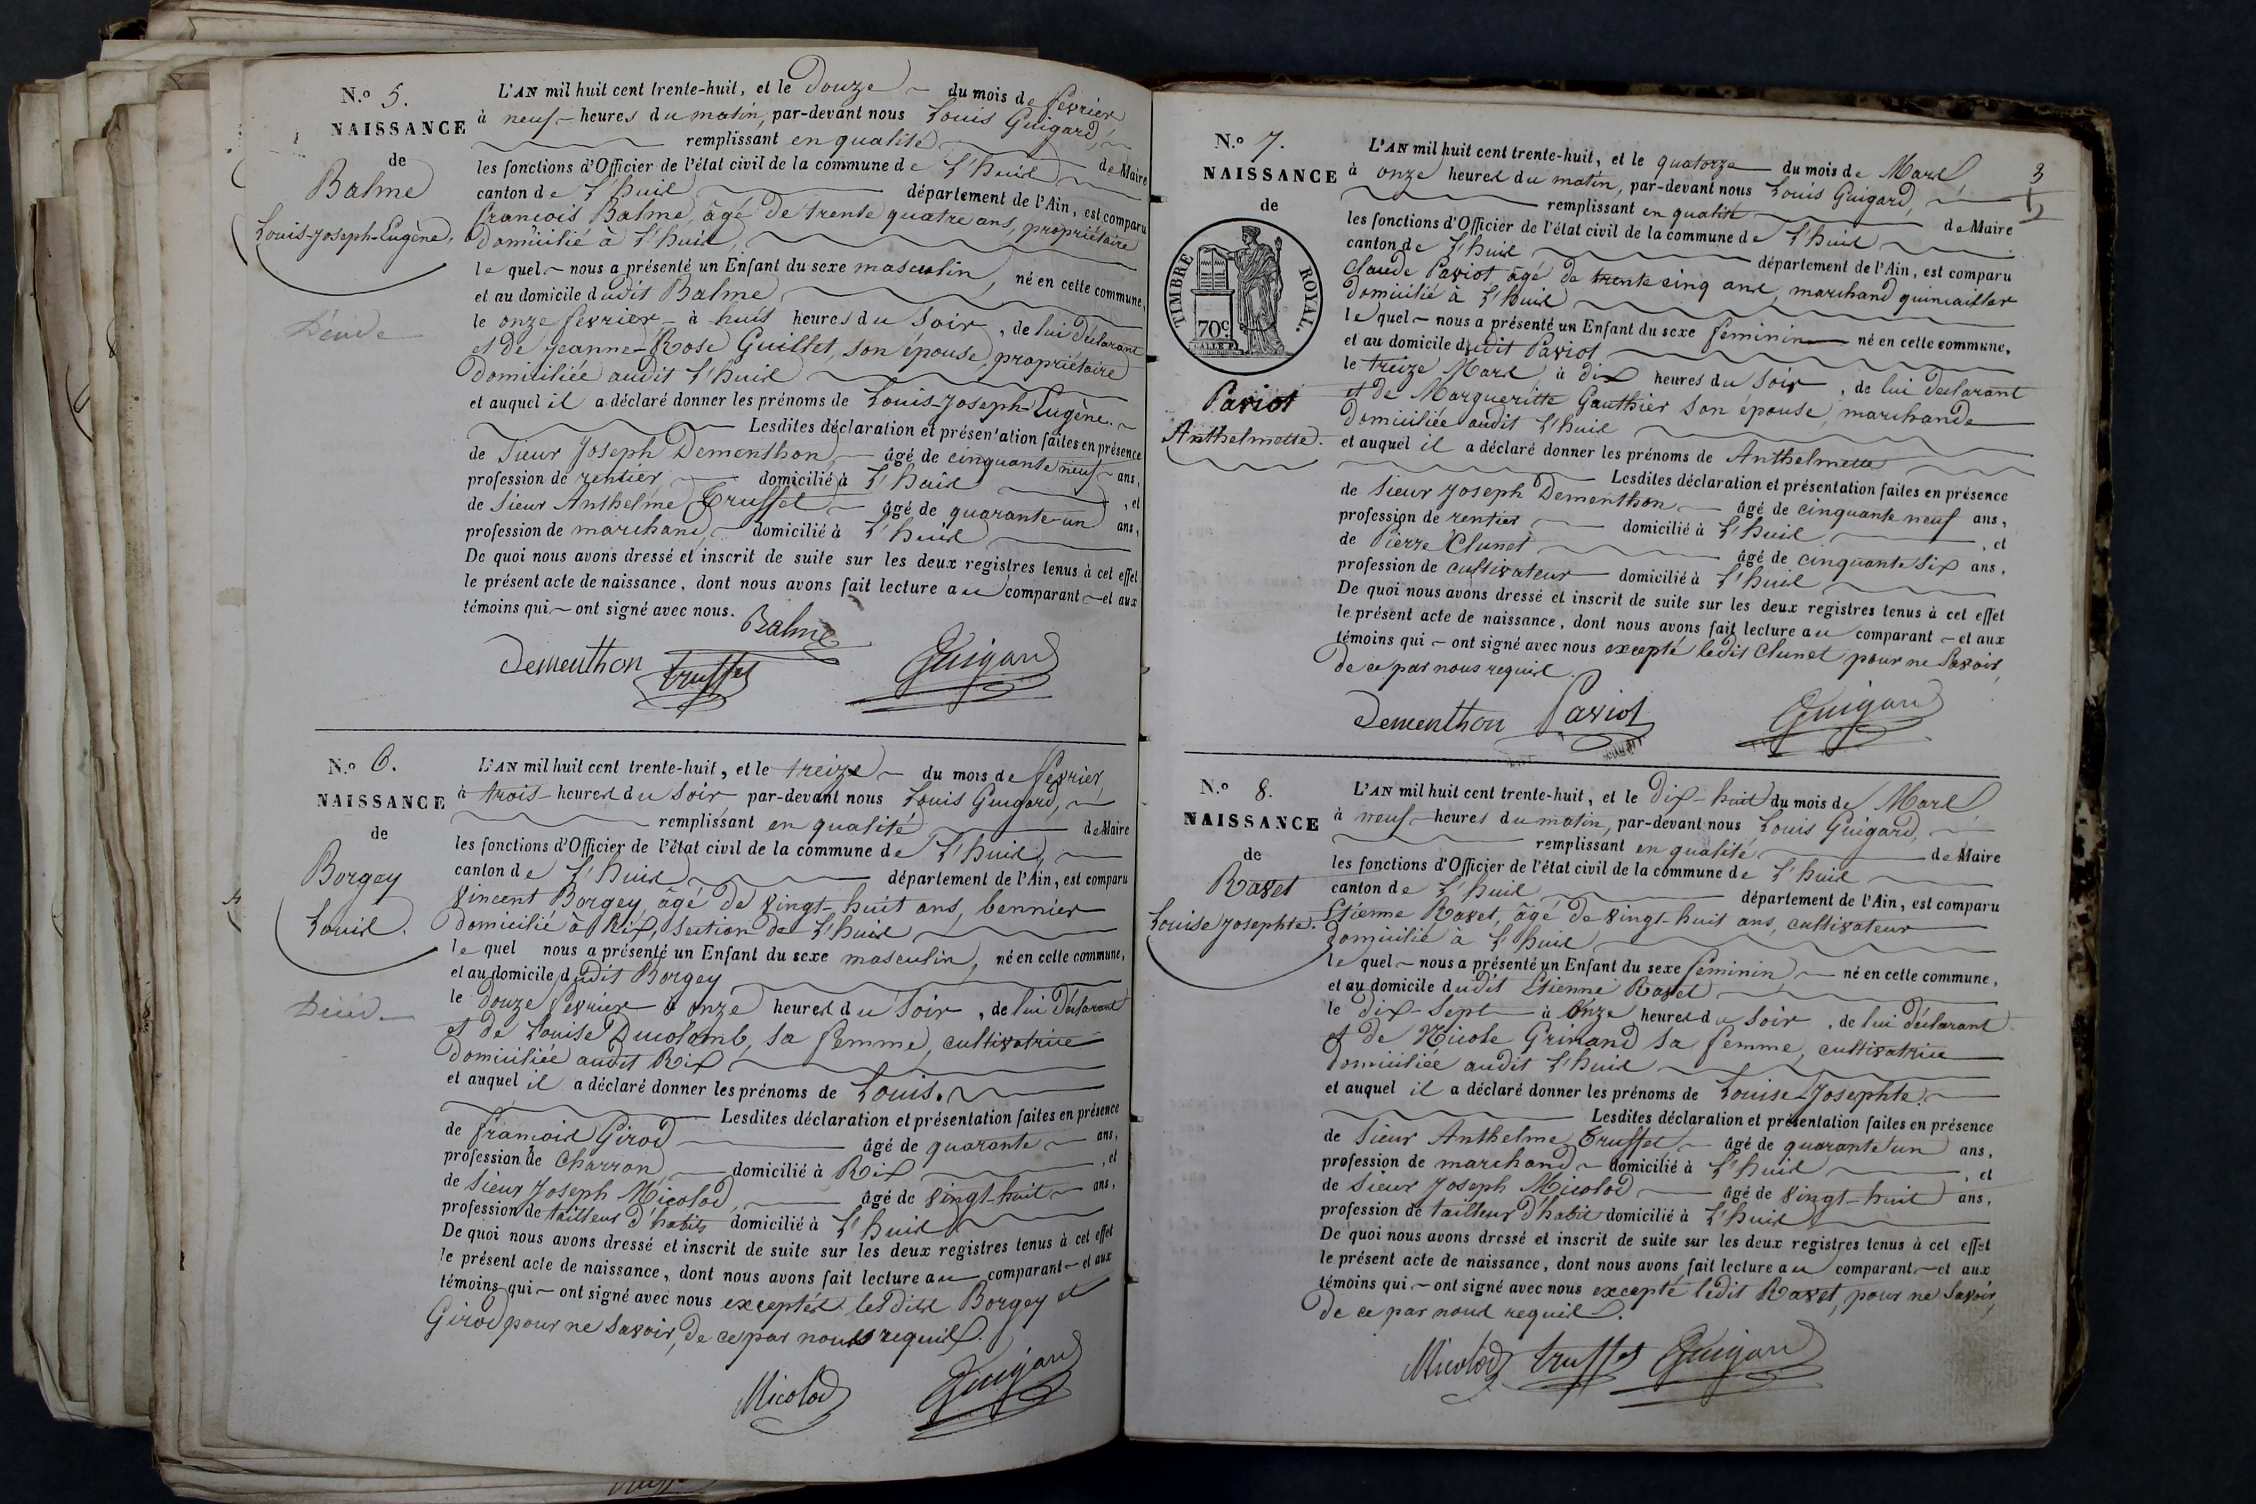 N.o 5.
NAISSANCE
de
Balme
Louis-Joseph-Eugène.
L'AN mil huit cent trente-huit, et le Douze du mois de février
à neuf heures du matin, par-devant nous Louis Guigard,
remplissant en qualité de Maire
les fonctions d'Officier de l'état civil de la commune de L'huis
canton de L'huis département de l'Ain, est comparu
françois Balme, âgé de trente quatre ans, propriétaire
Domicilié à L'huis,
le quel nous a présenté un Enfant du sexe masculin, né en cette commune,
et au domicile dudit Balme
le onze février à huit heures du Soir, de lui Déclarant
et de Jeanne-Rose Guillet, son épouse, propriétaire
Domiciliée audit L'huis
et auquel il a déclaré donner les prénoms de Louis-Joseph-Eugène.
Lesdites déclaration et présentation faites en présence
de Sieur Joseph Dementhon, âgé de cinquante neuf ans,
profession de rentier, domicilié à L'huis, et
de Sieur Anthelme Truffet âgé de quarante-un ans,
profession de marchand, domicilié à L'huis
De quoi nous avons dressé et inscrit de suite sur les deux registres tenus à cet effet
le présent acte de naissance, dont nous avons fait lecture au comparant et aux
témoins qui ont signé avec nous.
Balme
Dementhon truffet Guigard
N.o 6.
NAISSANCE
de
Borgey
Louis.
L'AN mil huit cent trente-huit, et le treize du mois de février,
à trois heures du Soir, par-devant nous Louis Guigard,
remplissant en qualité de Maire
les fonctions d'Officier de l'état civil de la commune de L'huis,
canton de L'huis département de l'Ain, est comparu
Vincent Borgey, âgé de vingt-huit ans, bennier
Domicilié à Rix, Section de L'huis
le quel nous a présenté un Enfant du sexe masculin, né en cette commune,
et au domicile dudit Borgey
le Douze février à onze heures du Soir, de lui Déclarant
et de Louise Ducolomb, sa femme, cultivatrice
Domiciliée audit Rix
et auquel il a déclaré donner les prénoms de Louis.
Lesdites déclaration et présentation faites en présence
de françois Girod âgé de quarante ans,
profession de Charron domicilié à Rix, et
de Sieur Joseph Micolod, âgé de vingt-huit ans,
profession de tailleur d'habits domicilié à L'huis
De quoi nous avons dressé et inscrit de suite sur les deux registres tenus à cet effet
le présent acte de naissance, dont nous avons fait lecture au comparant et aux
témoins qui ont signé avec nous exceptés lesdits Borgey et
Girod pour ne Savoir, de ce par nous requis.
Micolod Guigard
3
N.o 7.
NAISSANCE
de
TIMBRE ROYAL.
70c
Paviot
Anthelmette.
L'AN mil huit cent trente-huit, et le quatorze du mois de Mars
à onze heures du matin, par-devant nous Louis Guigard,
remplissant en qualité de Maire
les fonctions d'Officier de l'état civil de la commune de L'huis
canton de L'huis département de l'Ain, est comparu
Claude Paviot âgé de trente cinq ans, marchand quincailler
Domicilié à L'huis
le quel nous a présenté un Enfant du sexe féminin né en cette commune,
et au domicile dudit Paviot
le treize Mars à dix heures du Soir, de lui Declarant
et de Margueritte Gauthier son épouse, marchande
Domiciliée audit L'huis
et auquel il a déclaré donner les prénoms de Anthelmette
Lesdites déclaration et présentation faites en présence
de Sieur Joseph Dementhon âgé de cinquante neuf ans,
profession de rentier domicilié à L'huis, et
de Pierre Clunet âgé de cinquante Six ans,
profession de cultivateur domicilié à L'huis
De quoi nous avons dressé et inscrit de suite sur les deux registres tenus à cet effet
le présent acte de naissance, dont nous avons fait lecture au comparant et aux
témoins qui ont signé avec nous excepté ledit Clunet pour ne Savoir,
de ce par nous requis.
Dementhon Paviot Guigard
N.o 8.
NAISSANCE
de
Ravet
Louise Josephte.
L'AN mil huit cent trente-huit, et le Dix-huit du mois de Mars
à neuf heures du matin, par-devant nous Louis Guigard,
remplissant en qualité de Maire
les fonctions d'Officier de l'état civil de la commune de L'huis
canton de L'huis département de l'Ain, est comparu
Etienne Ravet, âgé de vingt-huit ans, cultivateur
Domicilié à L'huis
le quel nous a présenté un Enfant du sexe féminin, né en cette commune,
et au domicile dudit Etienne Ravet
le dix-Sept à onze heures du Soir, de lui déclarant
et de Nicole Grinand sa femme, cultivatrice
Domiciliée audit L'huis
et auquel il a déclaré donner les prénoms de Louise-Josephte.
Lesdites déclaration et présentation faites en présence
de Sieur Anthelme Truffet, âgé de quarante un ans,
profession de marchand domicilié à L'huis, et
de Sieur Joseph Micolod âgé de vingt-huit ans,
profession de tailleur d'habit domicilié à L'huis
De quoi nous avons dressé et inscrit de suite sur les deux registres tenus à cet effet
le présent acte de naissance, dont nous avons fait lecture au comparant et aux
témoins qui ont signé avec nous excepté ledit Ravet, pour ne Savoir,
de ce par nous requis.
Micolod truffet Guigard